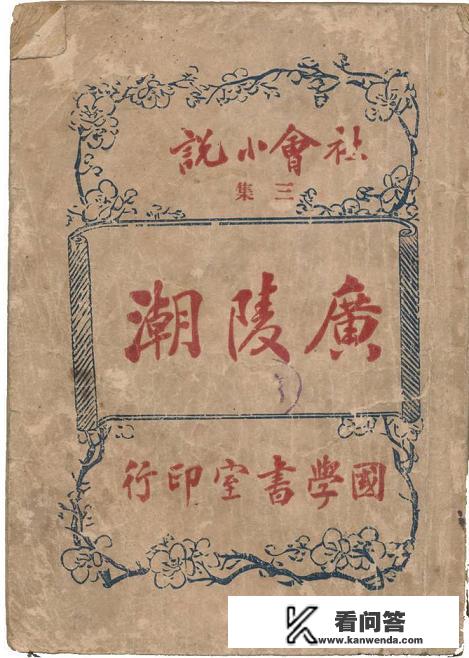 社會小說
三集
廣陵潮
國學書室印行
K 看问答
www.kanwenda.com